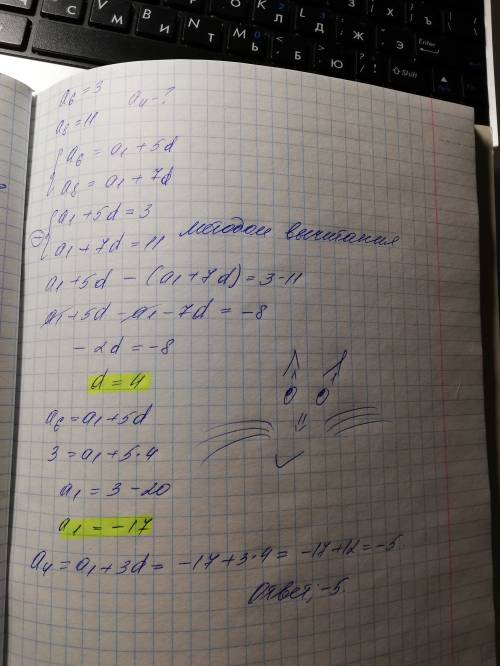 a₆ = 3 a₄ - ?
a₈ = 11
a₆ = a₁ + 5d
a₈ = a₁ + 7d
a₁ + 5d = 3
a₁ + 7d = 11 методом вычитания
a₁ + 5d - (a₁ + 7d) = 3 - 11
a₁ + 5d - a₁ - 7d = -8
- 2d = -8
d = 4
a₆ = a₁ + 5d
3 = a₁ + 5·4
a₁ = 3 - 20
a₁ = -17
a₄ = a₁ + 3d = -17 + 3·4 = -17 + 12 = -5
Ответ: -5.